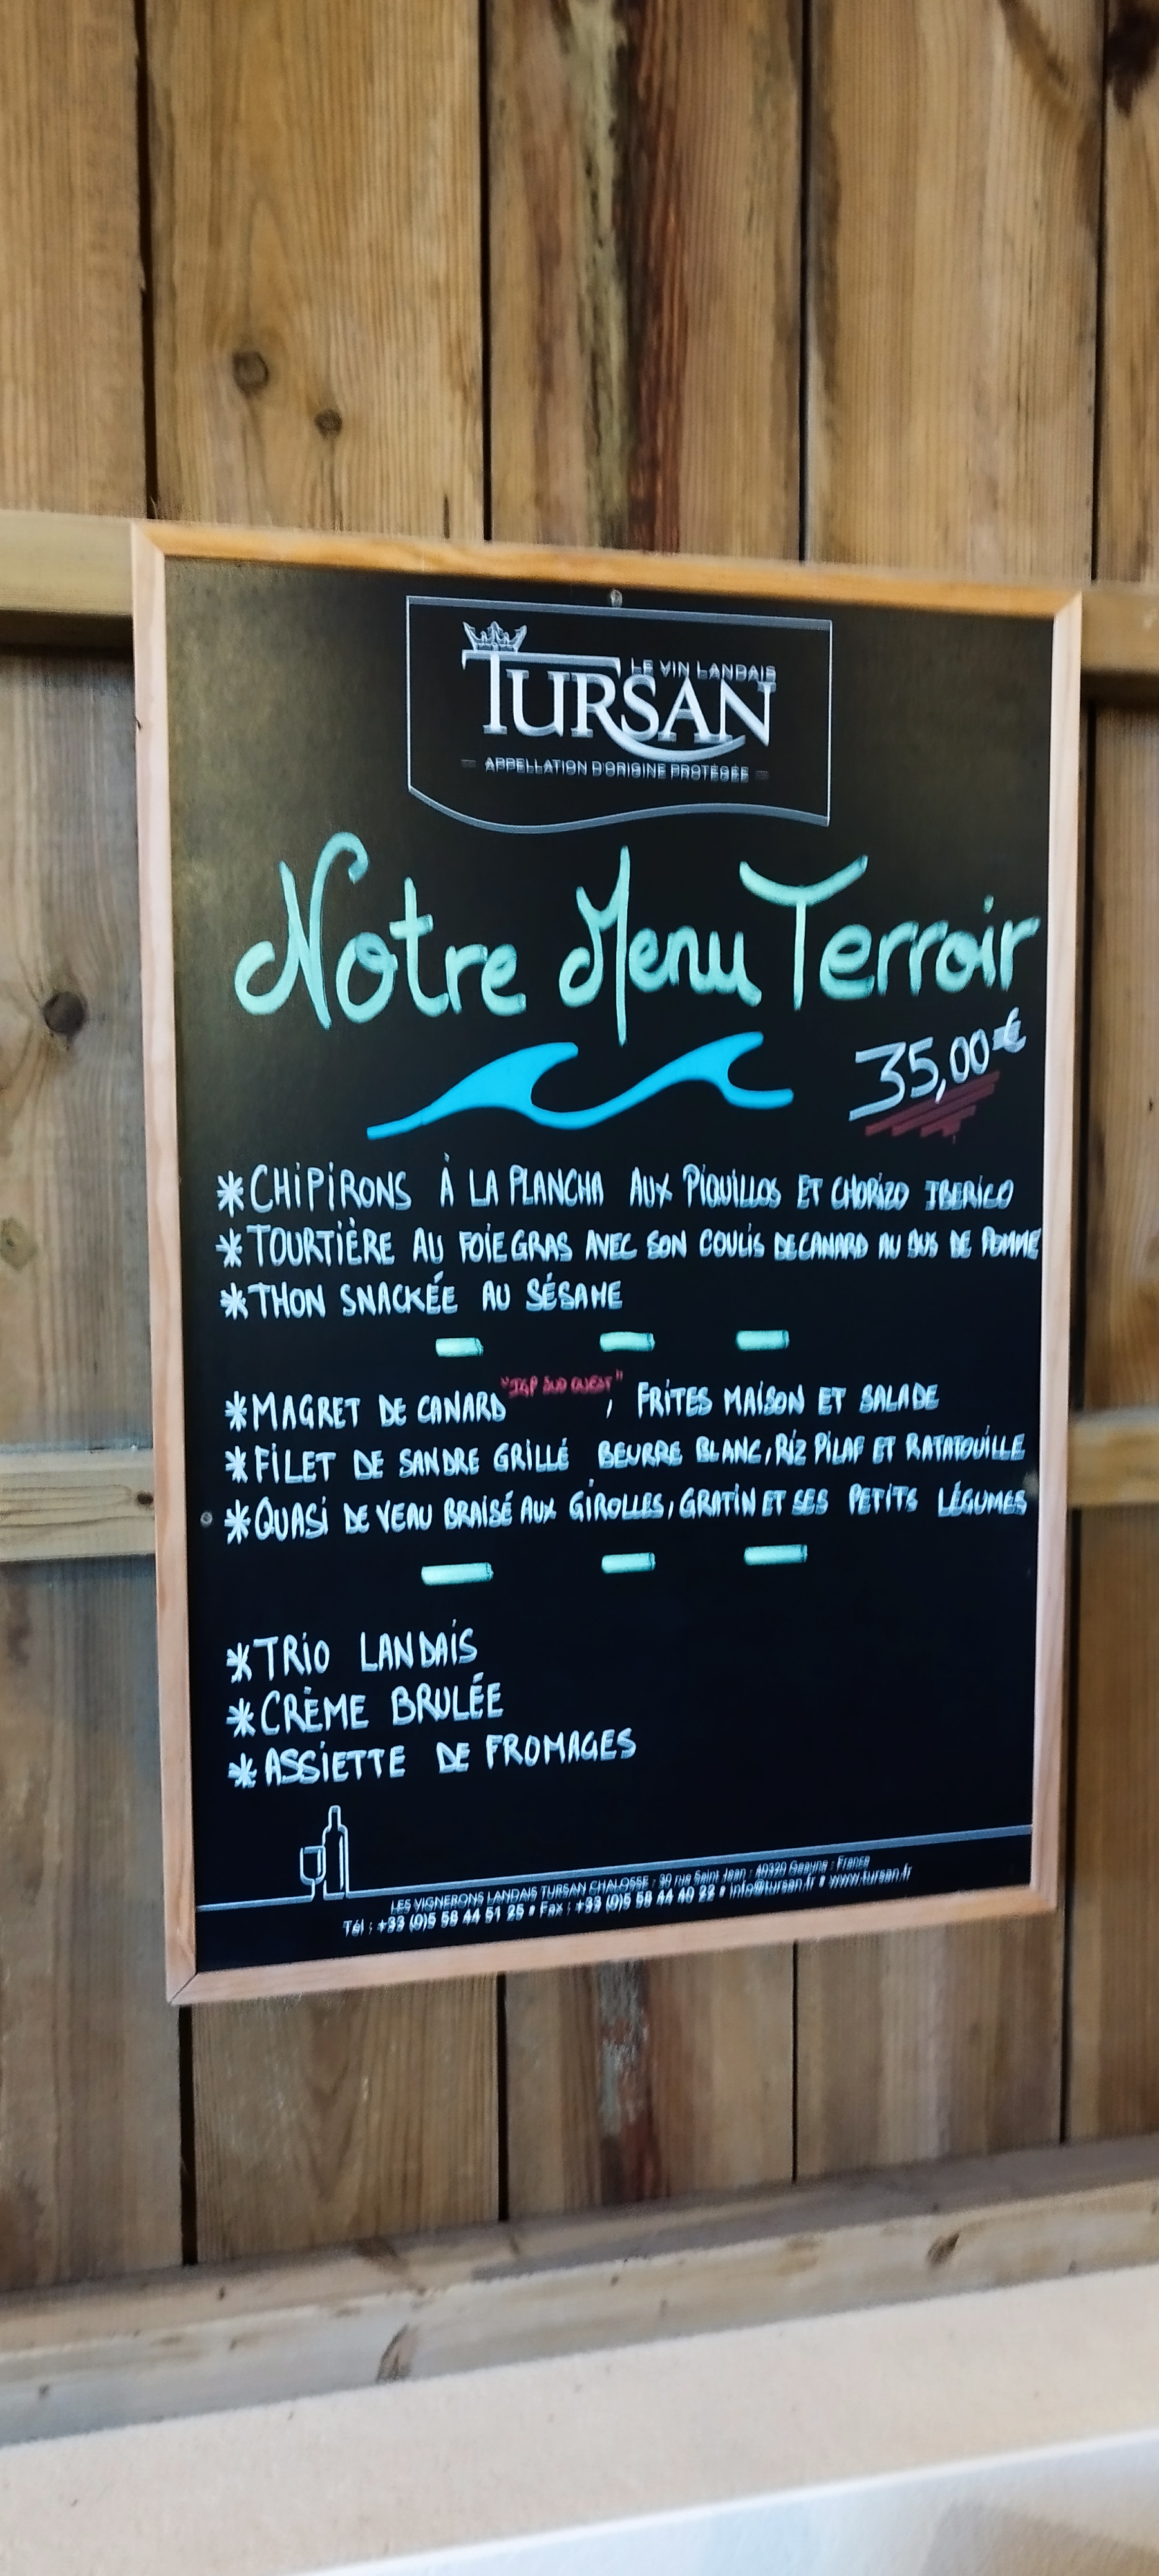 LE VIN LANDAIS
TURSAN
APPELLATION D'ORIGINE PROTÉGÉE
Notre Menu Terroir
35,00€
*CHIPIRONS À LA PLANCHA AUX PIQUILLOS ET CHORIZO IBERICO
*TOURTIÈRE AU FOIE GRAS AVEC SON COULIS DE CANARD AU JUS DE POMME
*THON SNACKÉE AU SÉSAME
*MAGRET DE CANARD "IGP SUD OUEST", FRITES MAISON ET SALADE
*FILET DE SANDRE GRILLÉ BEURRE BLANC, RIZ PILAF ET RATATOUILLE
*QUASI DE VEAU BRAISÉ AUX GIROLLES, GRATIN ET SES PETITS LÉGUMES
*TRIO LANDAIS
*CRÈME BRULÉE
*ASSIETTE DE FROMAGES
LES VIGNERONS LANDAIS TURSAN CHALOSSE - 30 rue Saint Jean - 40320 Geaune - France
Tél : +33 (0)5 58 44 51 25 • Fax : +33 (0)5 58 44 40 22 • info@tursan.fr • www.tursan.fr